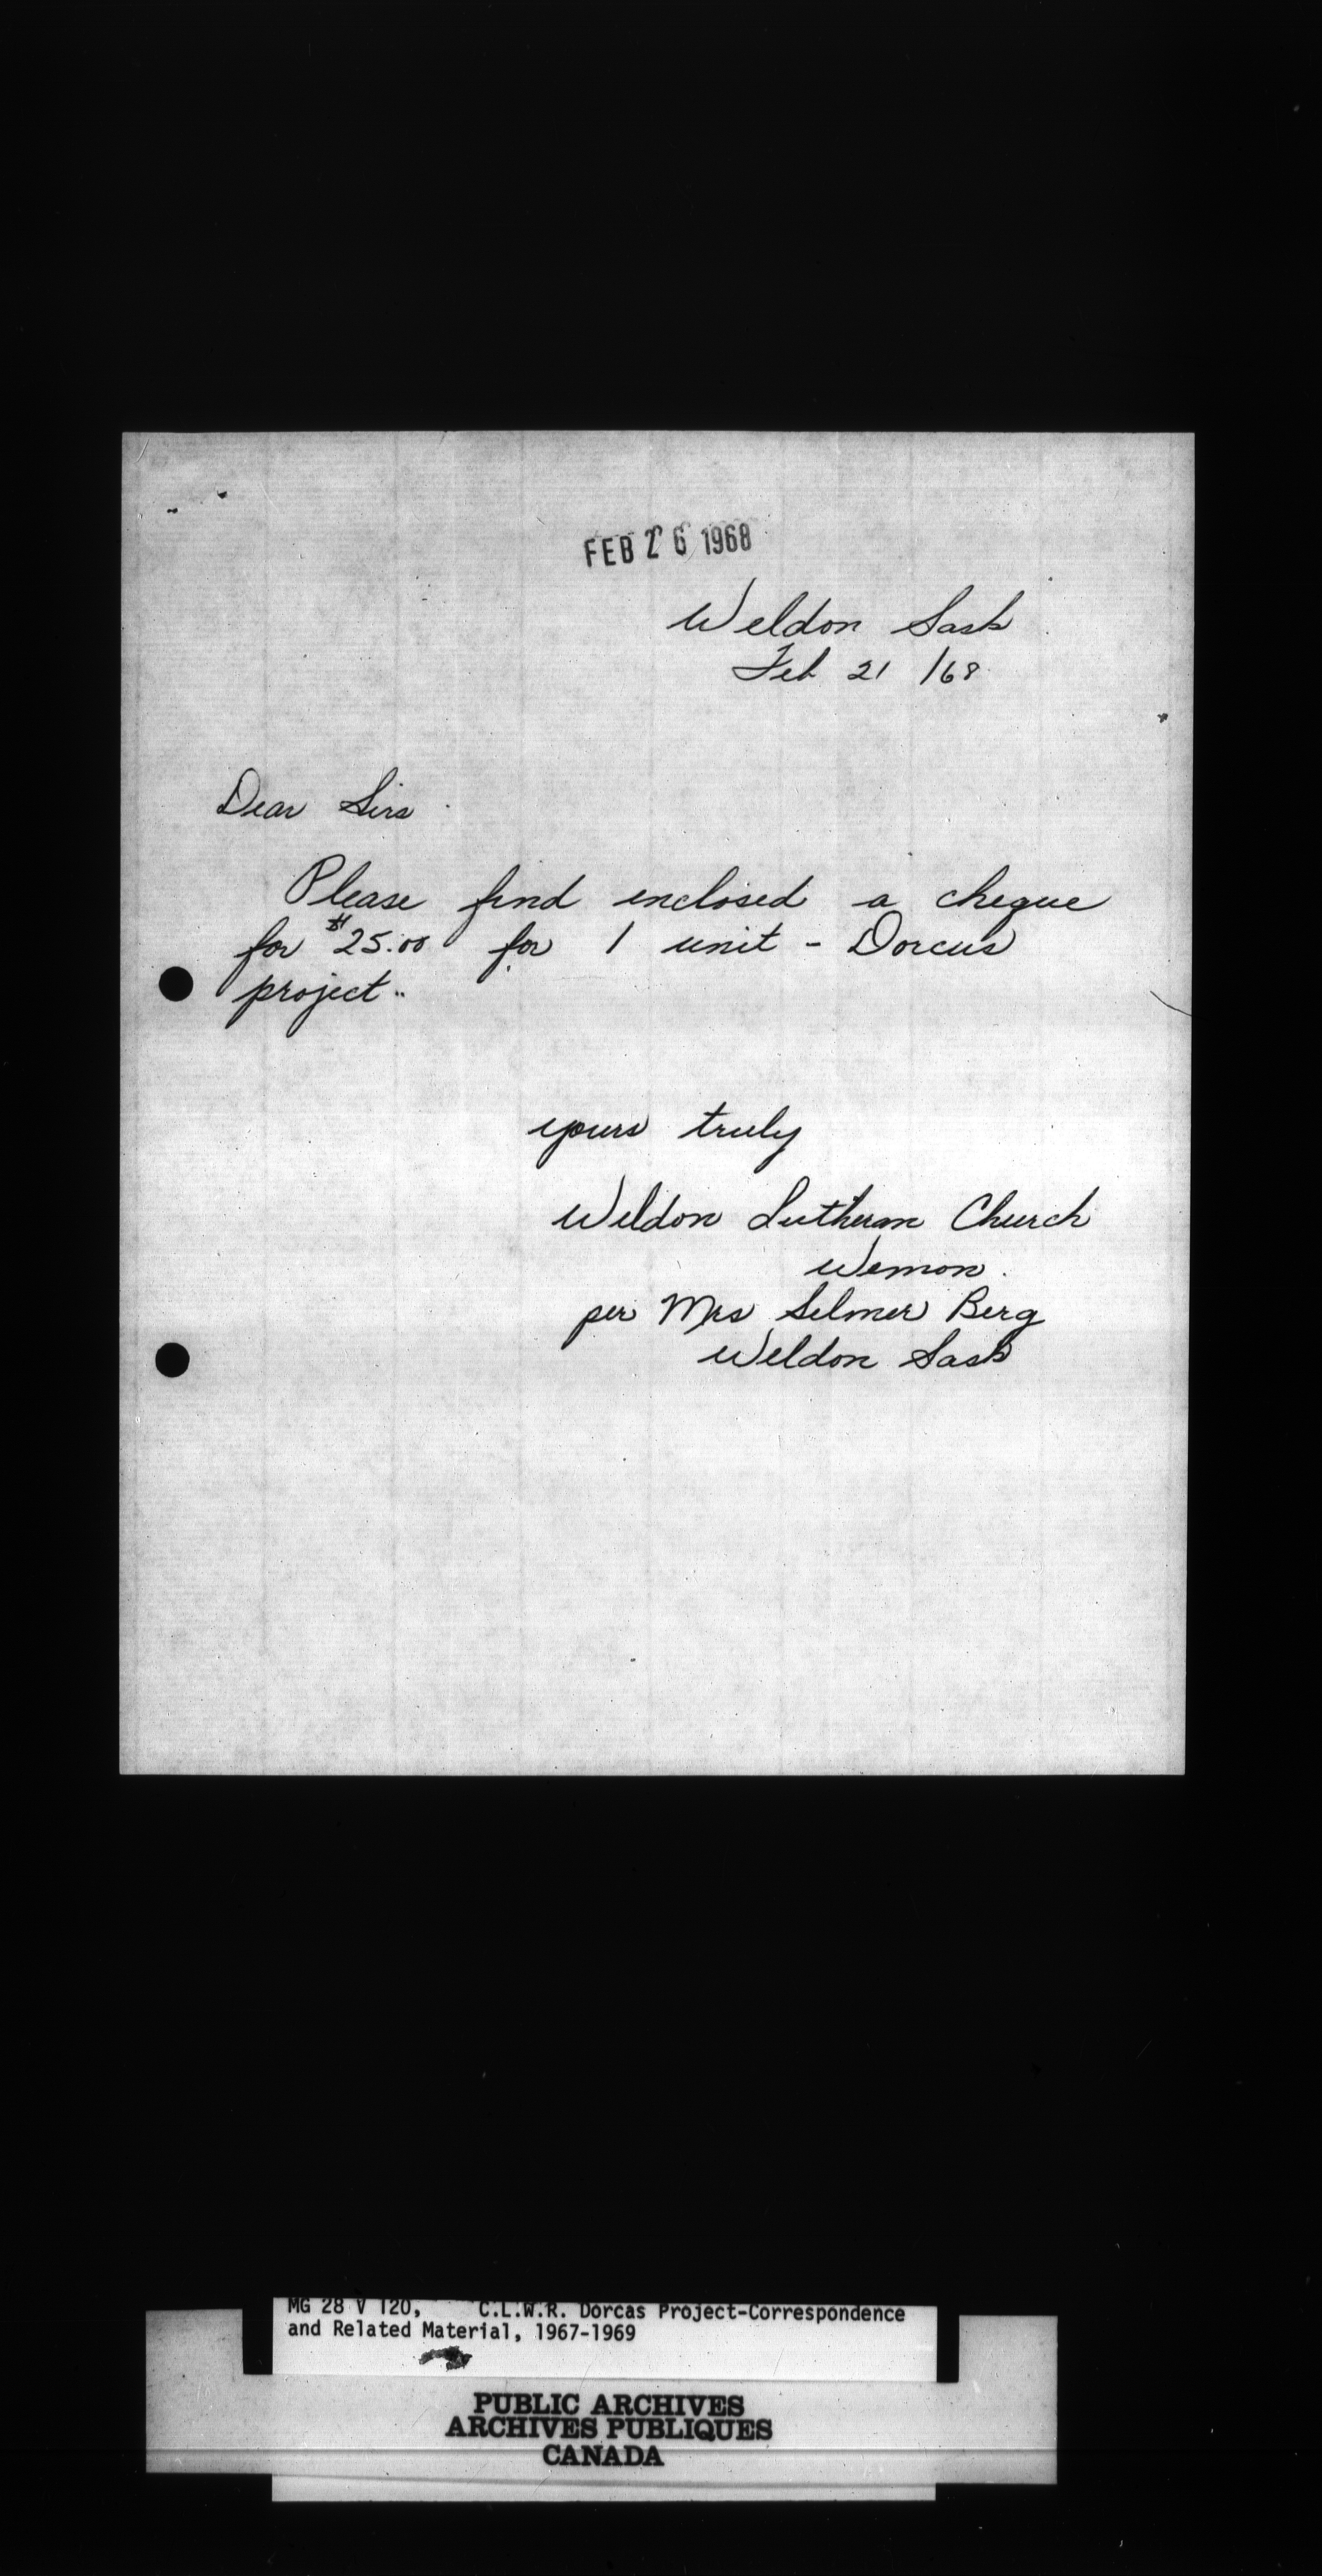 FEB 26 1968
Weldon Sask
Feb 21 /68
Dear Sirs
Please find enclosed a cheque
for $25.00 for 1 unit - Dorcus
project..
yours truly
Weldon Lutheran Church
Wemon.
per Mrs Selmer Berg
Weldon Sask
MG 28 V 120, C.L.W.R. Dorcas Project-Correspondence
and Related Material, 1967-1969
PUBLIC ARCHIVES
ARCHIVES PUBLIQUES
CANADA